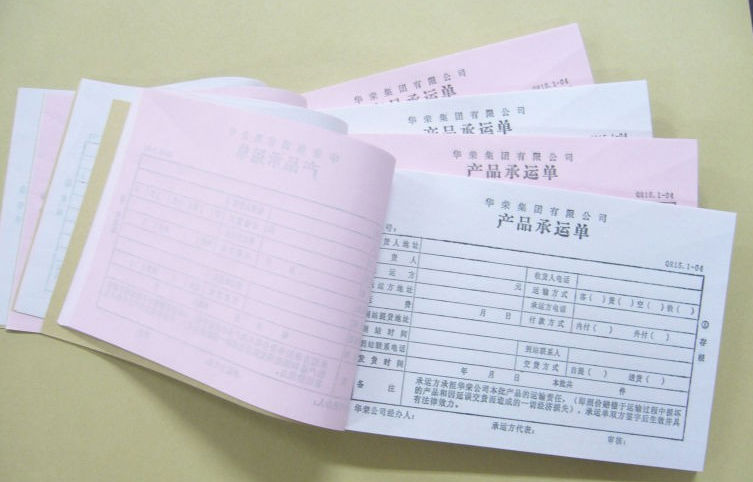 华荣集团有限公司
产品承运单
QR15.1-04
华荣集团有限公司
产品承运单
华荣集团有限公司
产品承运单
QR15.1-04
华荣集团有限公司
产品承运单
QR15.1-04
货人地址
收货人电话
货 人
运输方式 客( )货( )空( )铁( )
运方 元
承运方电话
承运方地址
付款方式 内付( ) 外付( )
运费 月 日
到站提货地址
到站时间
到站联系人
到站联系电话
交货方式 自提( ) 送货( )
发货时间 年 月 日 本批共 件
备注 承运方承担华荣公司本批产品的运输责任,(即照价赔偿于运输过程中损坏
的产品和因延误交货而造成的一切经济损失),承运单双方签字后生效并具
有法律效力。
①存根
华荣公司经办人: 承运方代表: 审核: